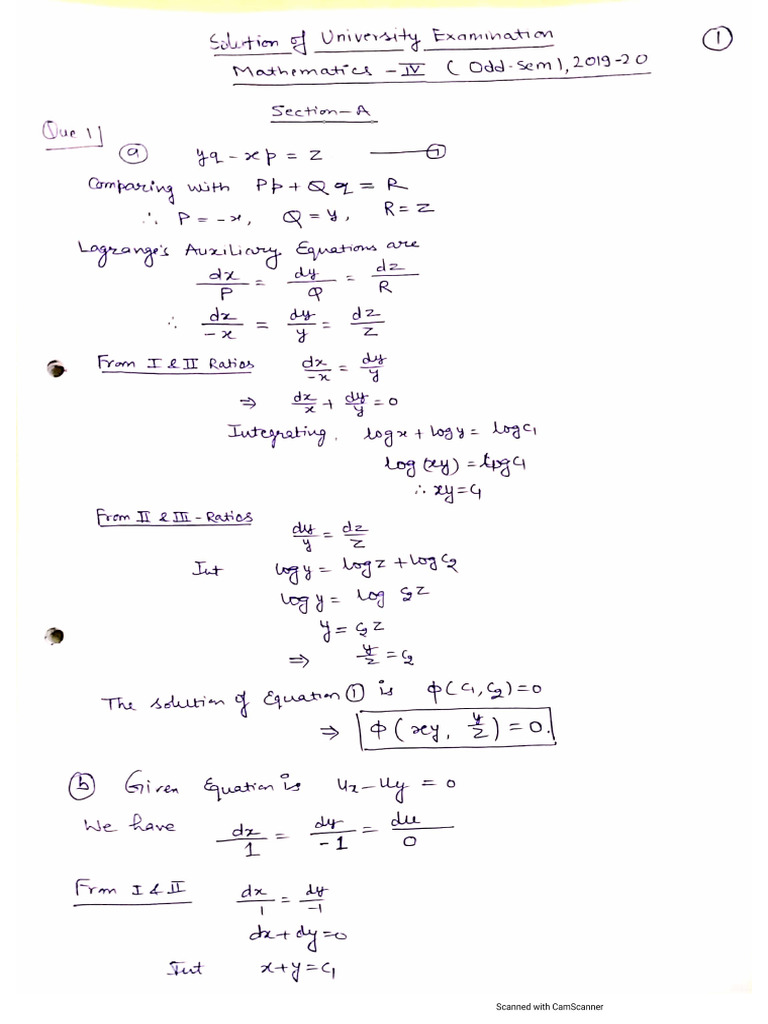 Solution of University Examination
①
Mathematics - IV ( Odd-sem ), 2019-20
Section-A
Que 1]
ⓐ yq - xp = z —— ①
Comparing with Pp + Qq = R
∴ P = -x, Q = y, R = z
Lagrange's Auxiliary Equations are
dx/P = dy/Q = dz/R
∴ dx/-x = dy/y = dz/z
From I & II Ratios dx/-x = dy/y
⇒ dx/x + dy/y = 0
Integrating, log x + log y = log c₁
log (xy) = log c₁
∴ xy = c₁
From II & III - Ratios
dy/y = dz/z
Int log y = log z + log c₂
log y = log c₂z
y = c₂z
⇒ y/z = c₂
The solution of Equation ① is ϕ(c₁, c₂) = 0
⇒ ϕ(xy, y/z) = 0.
ⓑ Given Equation is ux - uy = 0
We have dx/1 = dy/-1 = du/0
From I & II dx/1 = dy/-1
dx + dy = 0
Int x + y = c₁
Scanned with CamScanner